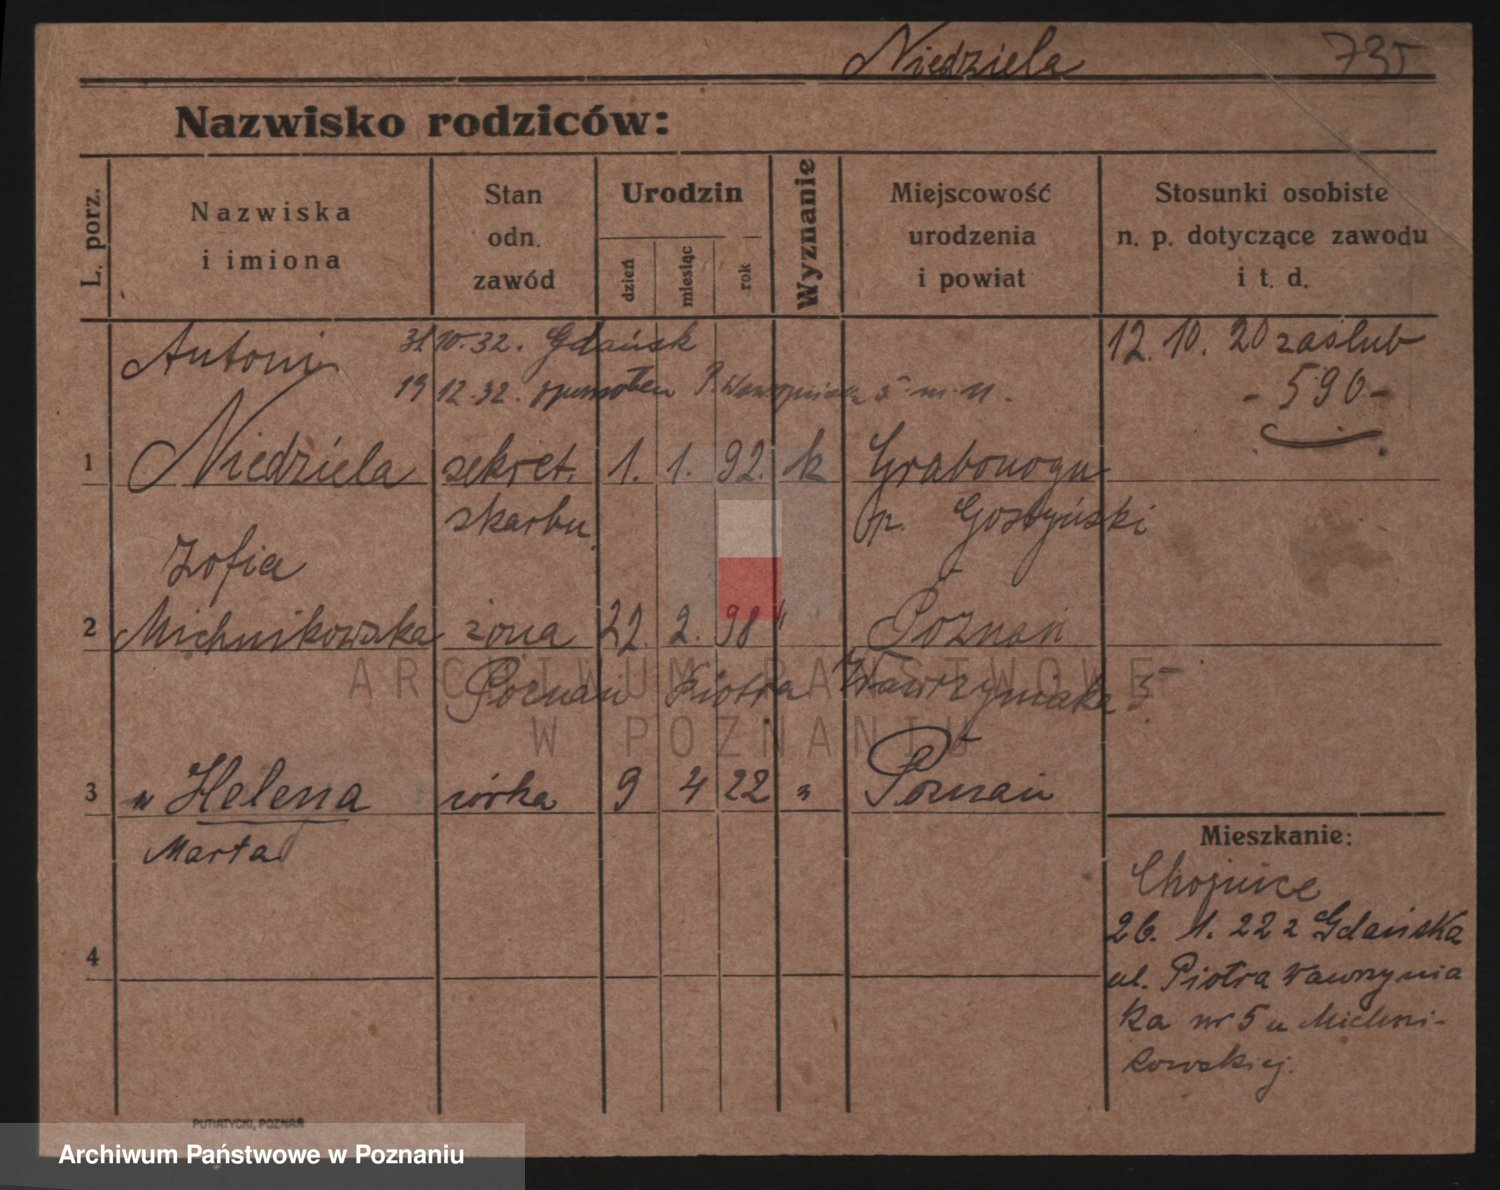 Niedziela 735
Nazwisko rodziców:
L. porz.
Nazwiska
i imiona
Stan
odn.
zawód
Urodzin
dzień
miesiąc
rok
Wyznanie
Miejscowość
urodzenia
i powiat
Stosunki osobiste
n. p. dotyczące zawodu
i t. d.
Antoni 31 10. 32. Gdańsk 12. 10. 20 zaślub
19 12. 32. P. Wawrzyniaka 5 m. 11. - 590 -
1 Niedziela sekret. 1. 1. 92. k Grabonogu
skarbu. p. Gostyński
Zofia
2 Michnikowska żona 22. 2. 98 " Poznań
Poznań Piotra Wawrzyniaka 5
3 " Helena córka 9 4 22 " Poznań
Marta
Mieszkanie:
Chojnice
26. 1. 22 z Gdańska
ul. Piotra Wawrzynia
ka nr 5 u Michni-
kowskiej.
4
PUTIATYCKI, POZNAŃ
ARCHIWUM PAŃSTWOWE
W POZNANIU
Archiwum Państwowe w Poznaniu